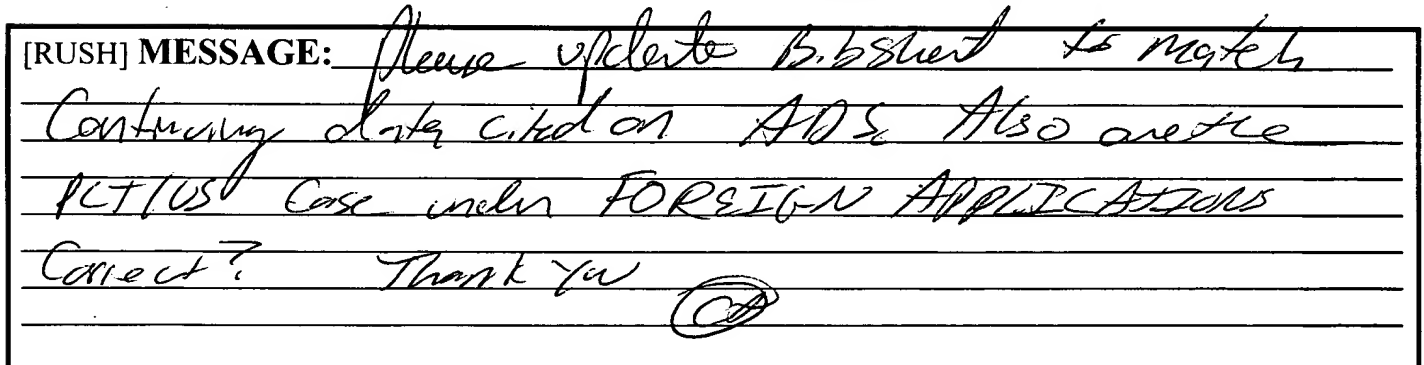 [RUSH] MESSAGE: Please update Bibsheet to match
Continuing data cited on ADS. Also are the
PCT/US Case under FOREIGN APPLICATIONS
Correct? Thank you